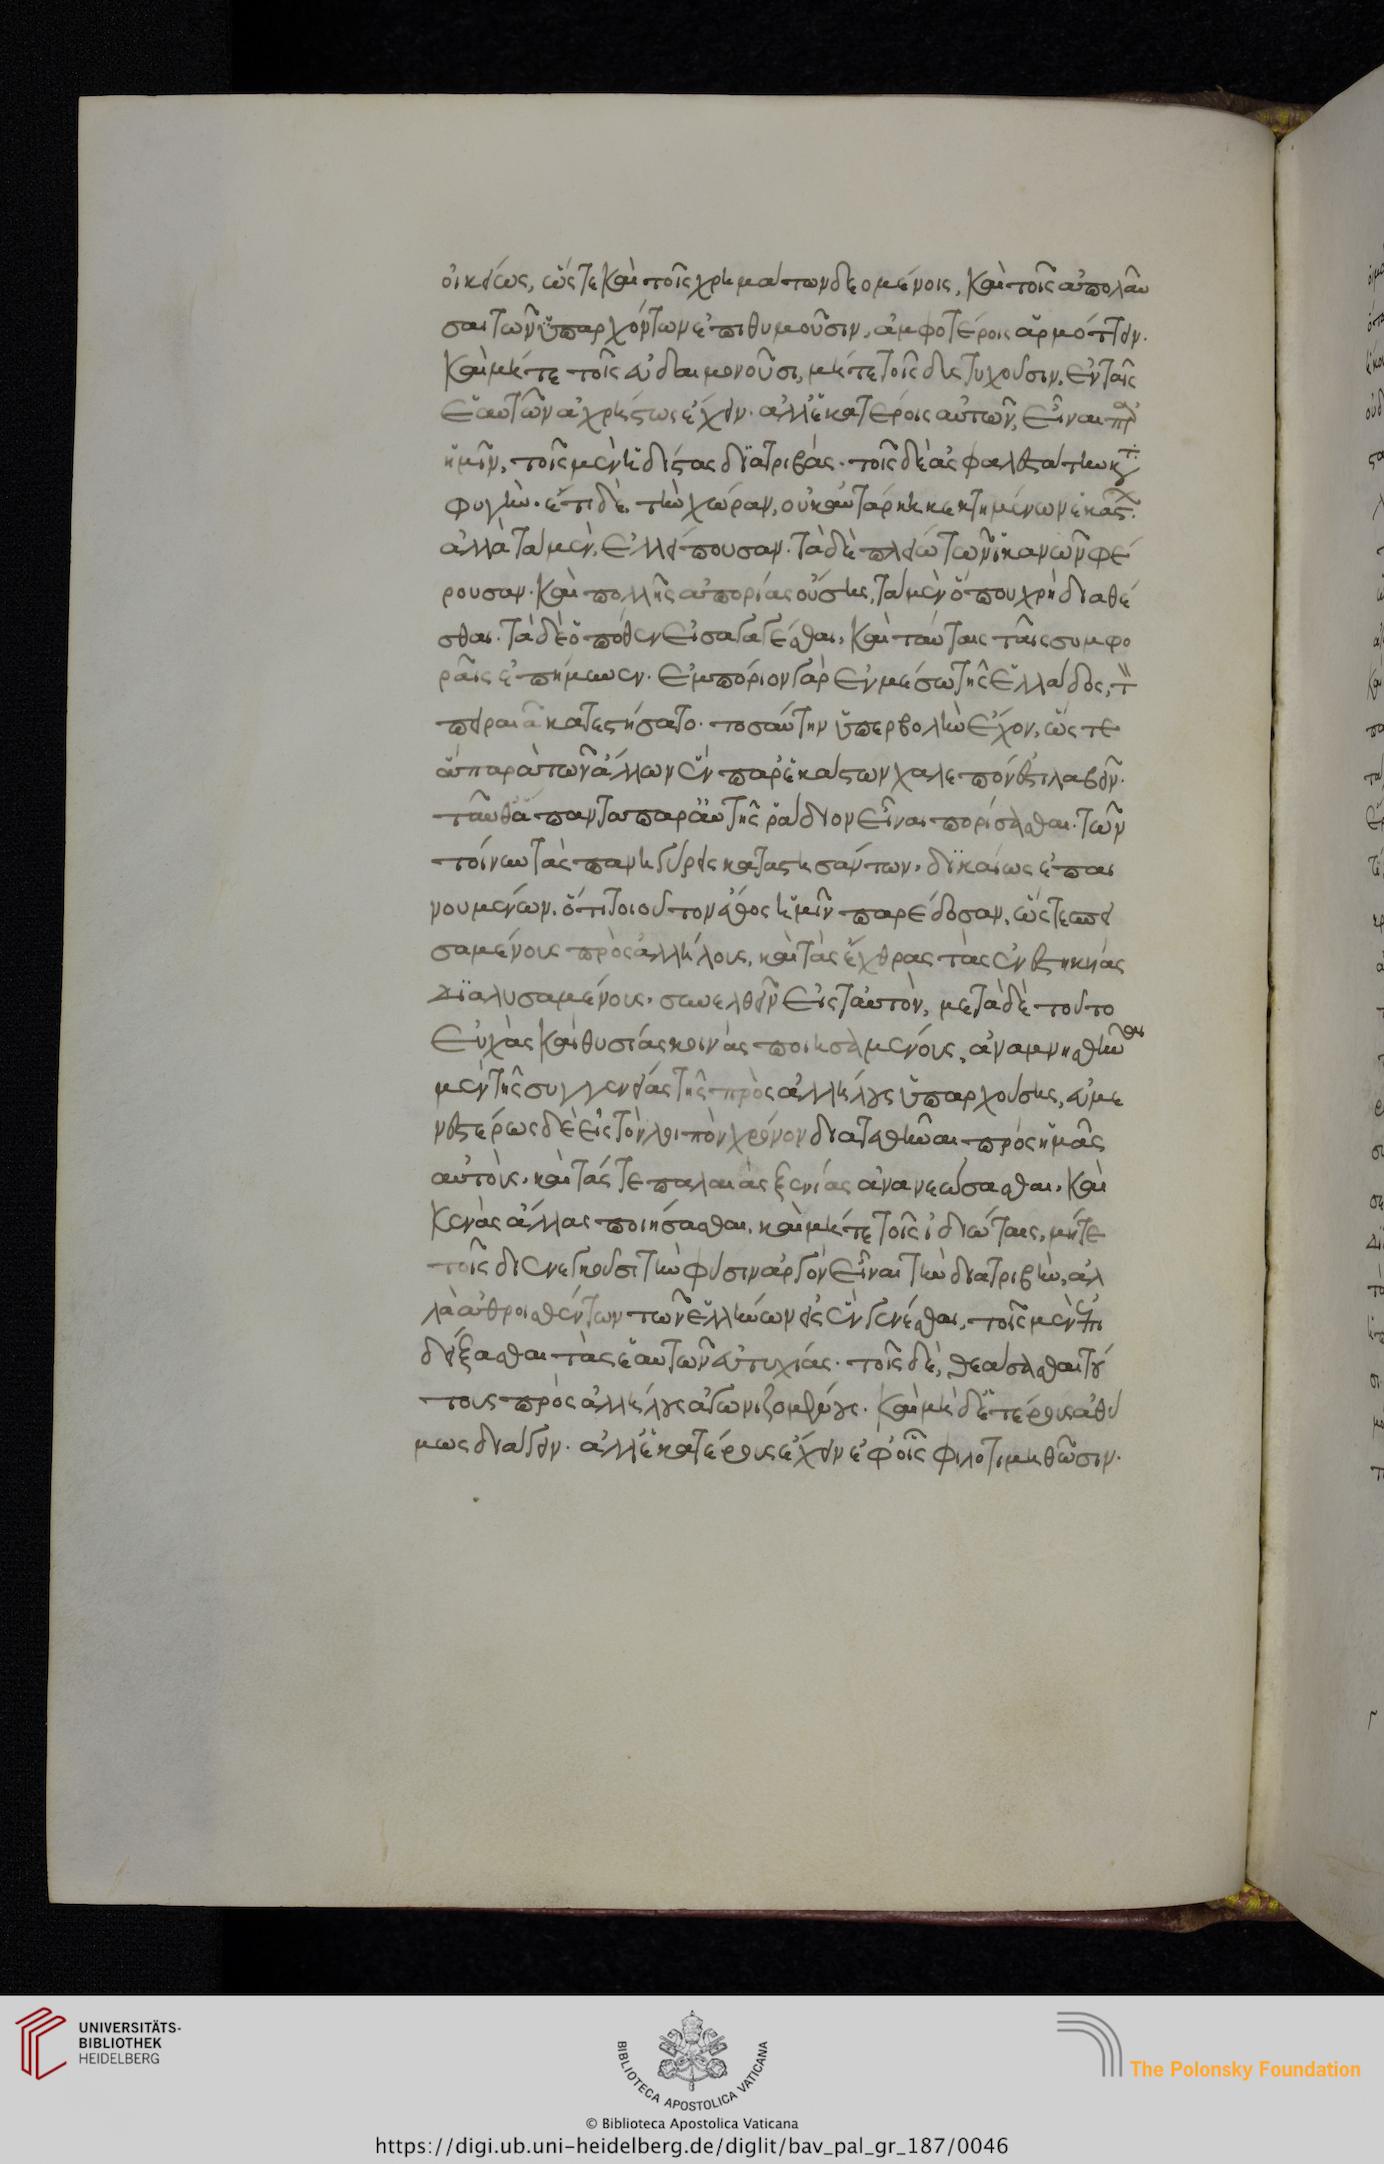 οἰκείως, ὥστε καὶ τοῖς χρημάτων δεομένοις, καὶ τοῖς ἀπολαῦ
σαι τῶν ὑπαρχόντων ἐπιθυμοῦσιν, ἀμφοτέροις ἁρμόττειν.
καὶ μήτε τοῖς εὐδαιμονοῦσι, μήτε τοῖς δυστυχοῦσιν, ἐν ταῖς
ἑαυτῶν ἀχρήστως ἔχειν. ἀλλ' ἑκατέροις αὐτῶν, εἶναι παρ'
ἡμῖν, τοῖς μὲν ἡδίστας διατριβάς. τοῖς δὲ ἀσφαλεστάτην κατα
φυγήν. ἔτι δὲ τὴν χώραν, οὐκ αὐτάρκη κεκτημένων ἑκάστων
ἀλλὰ τὰ μὲν, ἐλλείπουσαν. τὰ δὲ πλείω τῶν ἱκανῶν φέ
ρουσαν. καὶ πολλῆς ἀπορίας οὔσης, τὰ μὲν ὅπου χρὴ διαθέ
σθαι. τὰ δὲ ὁπόθεν εἰσαγαγέσθαι, καὶ ταύταις ταῖς συμφο
ραῖς ἐπήμυνεν. ἐμπόριον γὰρ ἐν μέσω τῆς Ἑλλάδος, τὸν
πειραιᾶ κατεστήσατο. τοσαύτην ὑπερβολὴν ἔχον, ὥστε
ἃ παρὰ τῶν ἄλλων ἓν παρ' ἑκάστων χαλεπόν ἐστι λαβεῖν.
ταῦθ' ἅπαντα παρ' αὐτῆς ῥάδιον εἶναι πορίσασθαι. τῶν
τοίνυν τὰς πανηγύρεις καταστησάντων, δικαίως ἐπαι
νουμένων, ὅτι τοιοῦτον ἔθος ἡμῖν παρέδοσαν, ὥστε σπει
σαμένοις πρὸς ἀλλήλους, καὶ τὰς ἔχθρας τὰς ἐνεστηκυίας
διαλυσαμένοις, συνελθεῖν εἰς ταὐτὸν, μετὰ δὲ τοῦτο
εὐχὰς καὶ θυσίας κοινὰς ποιησαμένοις, ἀναμνησθῆναι
μὲν τῆς συγγενείας τῆς πρὸς ἀλλήλους ὑπαρχούσης, εὐμε
νεστέρως δὲ εἰς τὸν λοιπὸν χρόνον διατεθῆναι πρὸς ἡμᾶς
αὐτοὺς, καὶ τάς τε παλαιὰς ξενίας ἀνανεώσασθαι, καὶ
κενὰς ἄλλας ποιήσασθαι, καὶ μήτε τοῖς ἰδιώταις, μήτε
τοῖς διενεγκοῦσι τὴν φύσιν ἀργὸν εἶναι τὴν διατριβὴν, ἀλ
λὰ ἀθροισθέντων τῶν ἑλλήνων εἰς ἓν γενέσθαι, τοῖς μὲν ἐπι
δείξασθαι τὰς ἑαυτῶν εὐτυχίας. τοῖς δὲ, θεάσασθαι τού
τους πρὸς ἀλλήλους ἀγωνιζομένους. καὶ μηδετέρους ἀθύ
μως διάγειν. ἀλλ' ἑκατέρους ἔχειν ἐφ' οἷς φιλοτιμηθῶσιν.
UNIVERSITÄTS-
BIBLIOTHEK
HEIDELBERG
BIBLIOTECA APOSTOLICA VATICANA
The Polonsky Foundation
© Biblioteca Apostolica Vaticana
https://digi.ub.uni-heidelberg.de/diglit/bav_pal_gr_187/0046